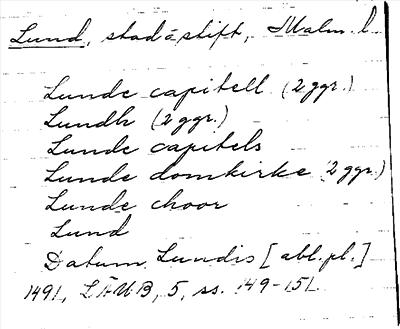 Lund, stad å stift, Malm. l.
Lunde capitell (2 ggr.)
Lundh (2 ggr.)
Lunde capitels
Lunde domkirke (2 ggr.)
Lunde choor
Lund
Datum Lundis [abl. pl.]
1491, LÄUB, 5, ss. 149-151